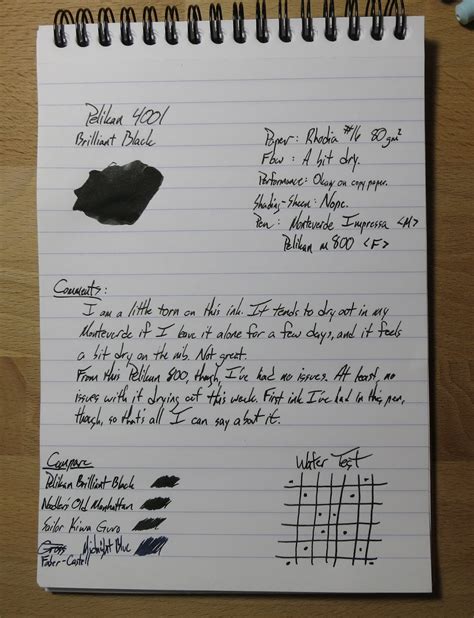 Pelikan 4001
Brilliant Black
Paper: Rhodia #16 80gm²
Flow: A bit dry.
Performance: Okay on copy paper.
Shading-Sheen: Nope.
Pen: Monteverde Impressa <M>
Pelikan m800 <F>
Comments:
I am a little torn on this ink. It tends to dry out in my
Monteverde if I leave it alone for a few days, and it feels
a bit dry on the nib. Not great.
From this Pelikan 800, though, I've had no issues. At least, no
issues with it drying out this week. First ink I've had in this pen,
though, so that's all I can say about it.
Compare
Pelikan Brilliant Black
Noodler's Old Manhattan
Sailor Kiwa Guro
Midnight Blue
Faber-Castell
Water Test